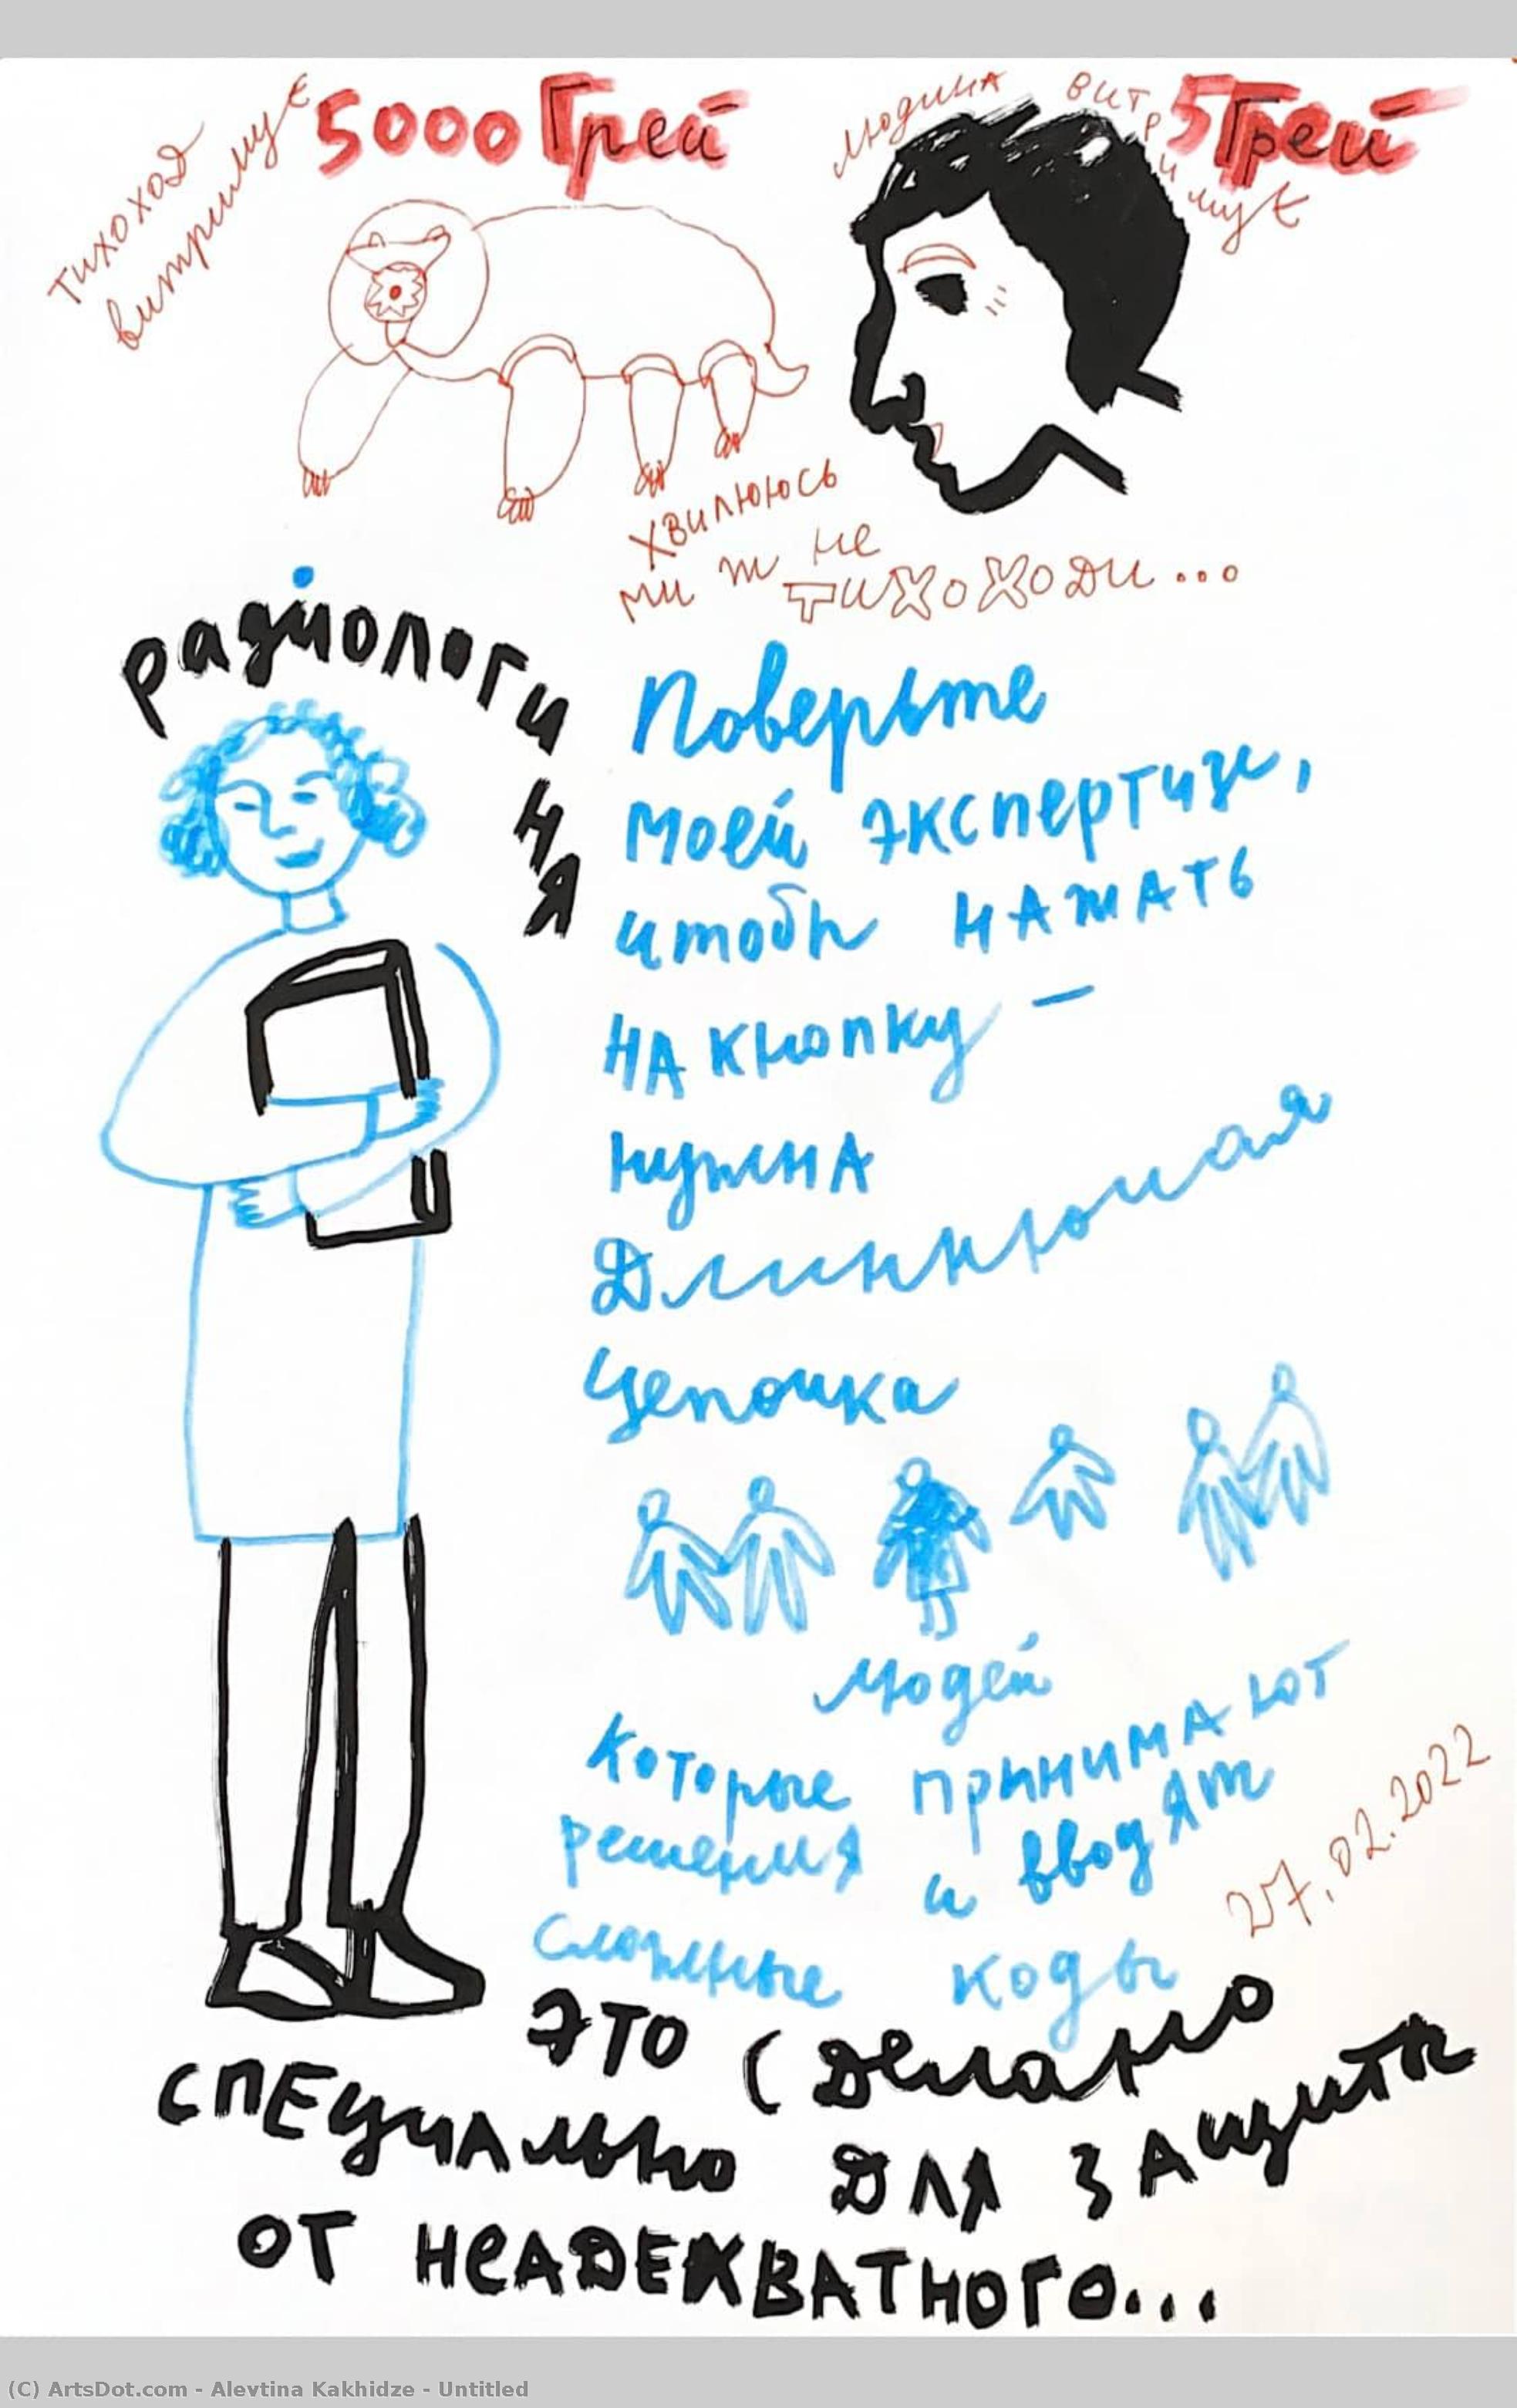 тихоход
витримує
5000 Грей
людина
витримує
5 Грей
хвилююсь
ми ж не
тихоходи...
радіологиня
Поверьте
моей экспертизе,
чтобы нажать
на кнопку –
нужна
Длинннющая
цепочка
людей
которые принимают
решения и вводят
сложные коды
27.02.2022
это сделано
специально для защиты
от неадекватного...
(C) ArtsDot.com - Alevtina Kakhidze - Untitled